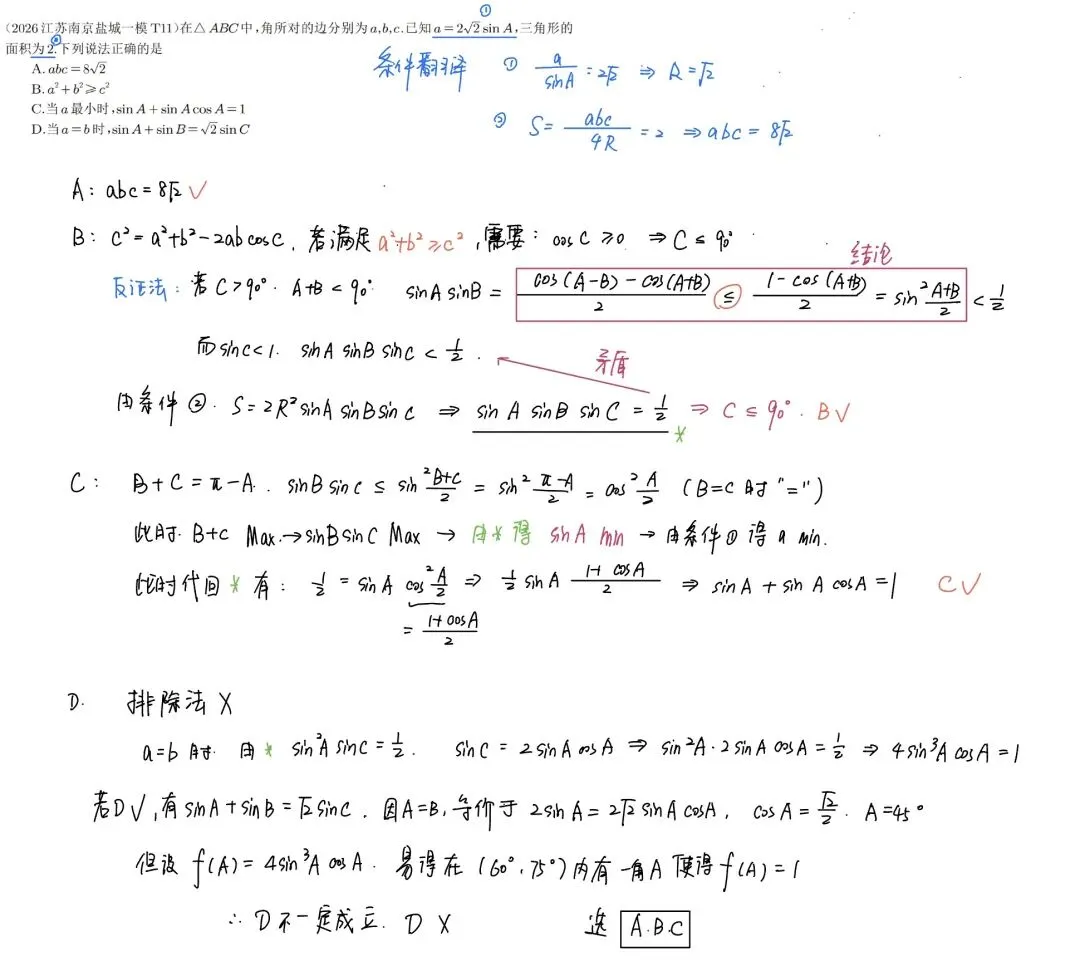 ①
(2026江苏南京盐城一模T11)在△ABC中,角所对的边分别为a,b,c.已知a=2√2 sin A,三角形的
面积为2.下列说法正确的是
②
A. abc=8√2
B. a²+b²≥c²
C.当a最小时,sin A+sin Acos A=1
D.当a=b时,sin A+sin B=√2 sin C
条件翻译 ① a/sinA = 2√2 ⇒ R=√2
② S= abc/4R = 2 ⇒ abc = 8√2
A: abc=8√2 ✓
B: c²=a²+b²-2ab cosC, 若满足 a²+b²≥c², 需要: cosC≥0 ⇒ C≤90°.
结论
反证法: 若C>90°. A+B<90° sinA sinB = (cos(A-B)-cos(A+B))/2 ≤ (1-cos(A+B))/2 = sin² (A+B)/2 < 1/2
而sinC<1. sinA sinB sinC < 1/2.
矛盾
由条件②. S=2R²sinA sinB sinC ⇒ sinA sinB sinC = 1/2 ⇒ C≤90°. B✓
*
C: B+C=π-A. sinB sinC ≤ sin² (B+C)/2 = sin² (π-A)/2 = cos² A/2 (B=C时"=")
此时. B+C Max.→sinB sinC Max → 由*得 sinA min → 由条件①得 a min.
此时代回*有: 1/2 = sinA cos² A/2 ⇒ 1/2 sinA (1+cosA)/2 ⇒ sinA + sinA cosA=1 C✓
= (1+cosA)/2
D. 排除法 X
a=b时. 由* sin²A sinC = 1/2. sinC = 2sinA cosA ⇒ sin²A·2sinA cosA = 1/2 ⇒ 4sin³A cosA=1
若D✓,有sinA+sinB=√2 sinC. 因A=B, 等价于 2sinA=2√2 sinA cosA, cosA=√2/2. A=45°
但设 f(A)=4sin³A cosA. 易得在(60°,75°)内有一角A使得f(A)=1
∴ D不一定成立. D X 选 A.B.C